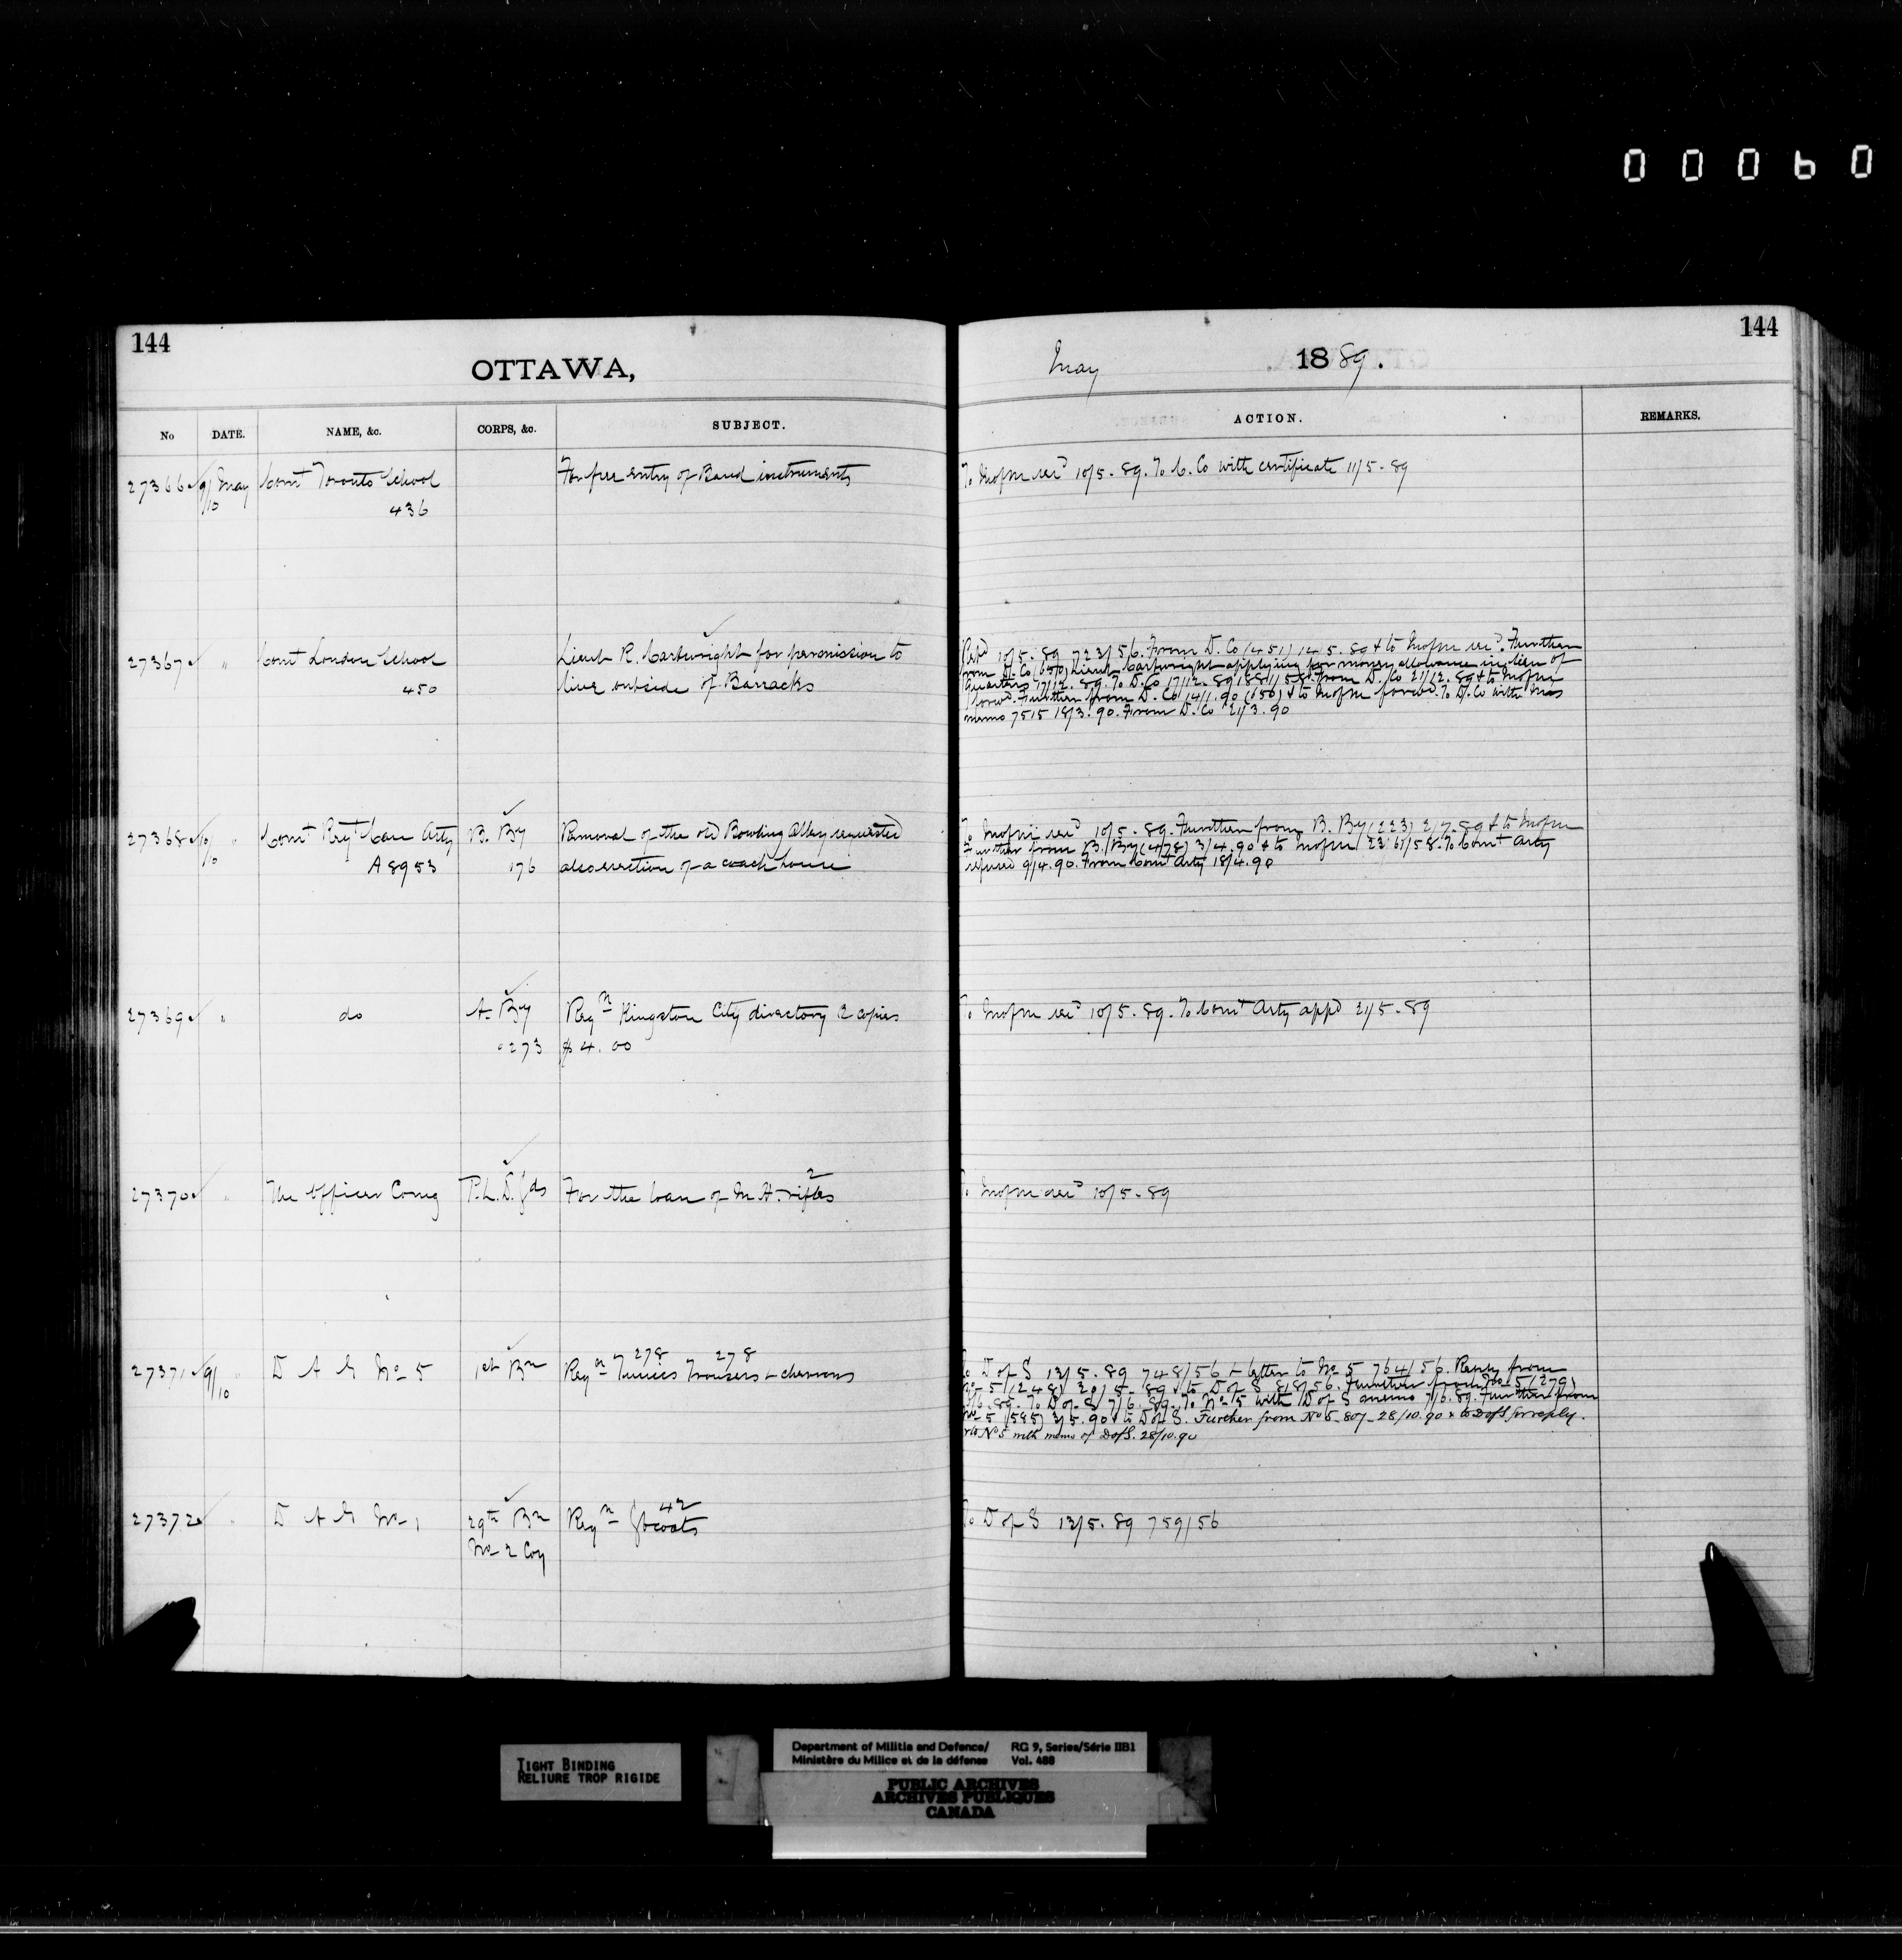 00060
144
144
OTTAWA,
May 1889.
No DATE. NAME, &c. CORPS, &c. SUBJECT. ACTION. REMARKS.
27366 9/10 May Comt Toronto School For free entry of Band instruments To Mofm recd 10/5.89. To C. Co with certificate 11/5.89
436
27367 " Comt London School Lieut R. Cartwright for permission to
450 live outside of Barracks
10/5.89 723/56. From D. Co (451) 14.5.89 & to Mofm recd. Further
from D. Co (650) Lieut Cartwright applying for money allowance in lieu of
Quarters 17/12.89. To D. Co 17/12.89 1881/58. From D. Co 21/12.89 & to Mofm
forwd. Further from D. Co 14/1.90 (656) & to Mofm forwd. To D. Co with
memo 7515 18/3.90. From D. Co 21/3.90
27368 10/10 " Comt Regt Can Arty B. By Removal of the old Bowling Alley requested
A8953 176 also erection of a coach house
To Mofm recd 10/5.89. Further from B. By (223) 2/7.89 & to Mofm
Further from B. By (478) 3/4.90 & to Mofm 2361/58. To Comt Arty
refused 9/4.90. From Comt Arty 18/4.90
27369 " do A. By Reqn Kingston City directory 2 copies To Mofm recd 10/5.89. To Comt Arty appd 21/5.89
273 $4.00
27370 " The Officer Comg P.L.D. Gds For the loan of M.H. rifles 2 To Mofm recd 10/5.89
27371 9/10 " D A G No 5 1st Bn Reqn Tunics 278 Trousers 278 & chevrons
To D of S 13/5.89 748/56 & letter to No 5 764/56. Reply from
No 5 (248) 20/5.89 & to D of S 818/56. Further from No 5 (279)
/6.89. To D of S 7/6.89. To No 5 with D of S memo 7/6.89. Further from
No 5 (585) 3/5.90 & to D of S. Further from No 5 - 807 - 28/10.90 & to D of S for reply.
to No 5 with memo of D of S. 28/10.90
27372 " D A G No 1 29th Bn Reqn Gtcoats 42 To D of S 13/5.89 759/56
No 2 Coy
TIGHT BINDING
RELIURE TROP RIGIDE
Department of Militia and Defence/ RG 9, Series/Série IIB1
Ministère du Milice et de la défense Vol. 488
PUBLIC ARCHIVES
ARCHIVES PUBLIQUES
CANADA